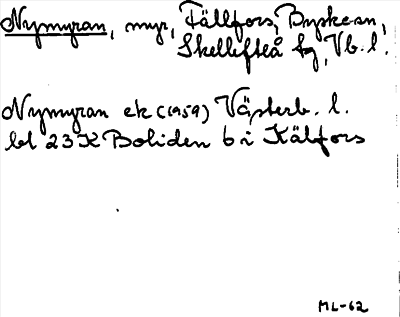 Nymyran, myr, Fällfors, Byske sn,
Skellefteå tg, Vb. l.
Nymyran ek (1959) Västerb. l.
bl 23K Boliden 6 i Källfors
ML-62